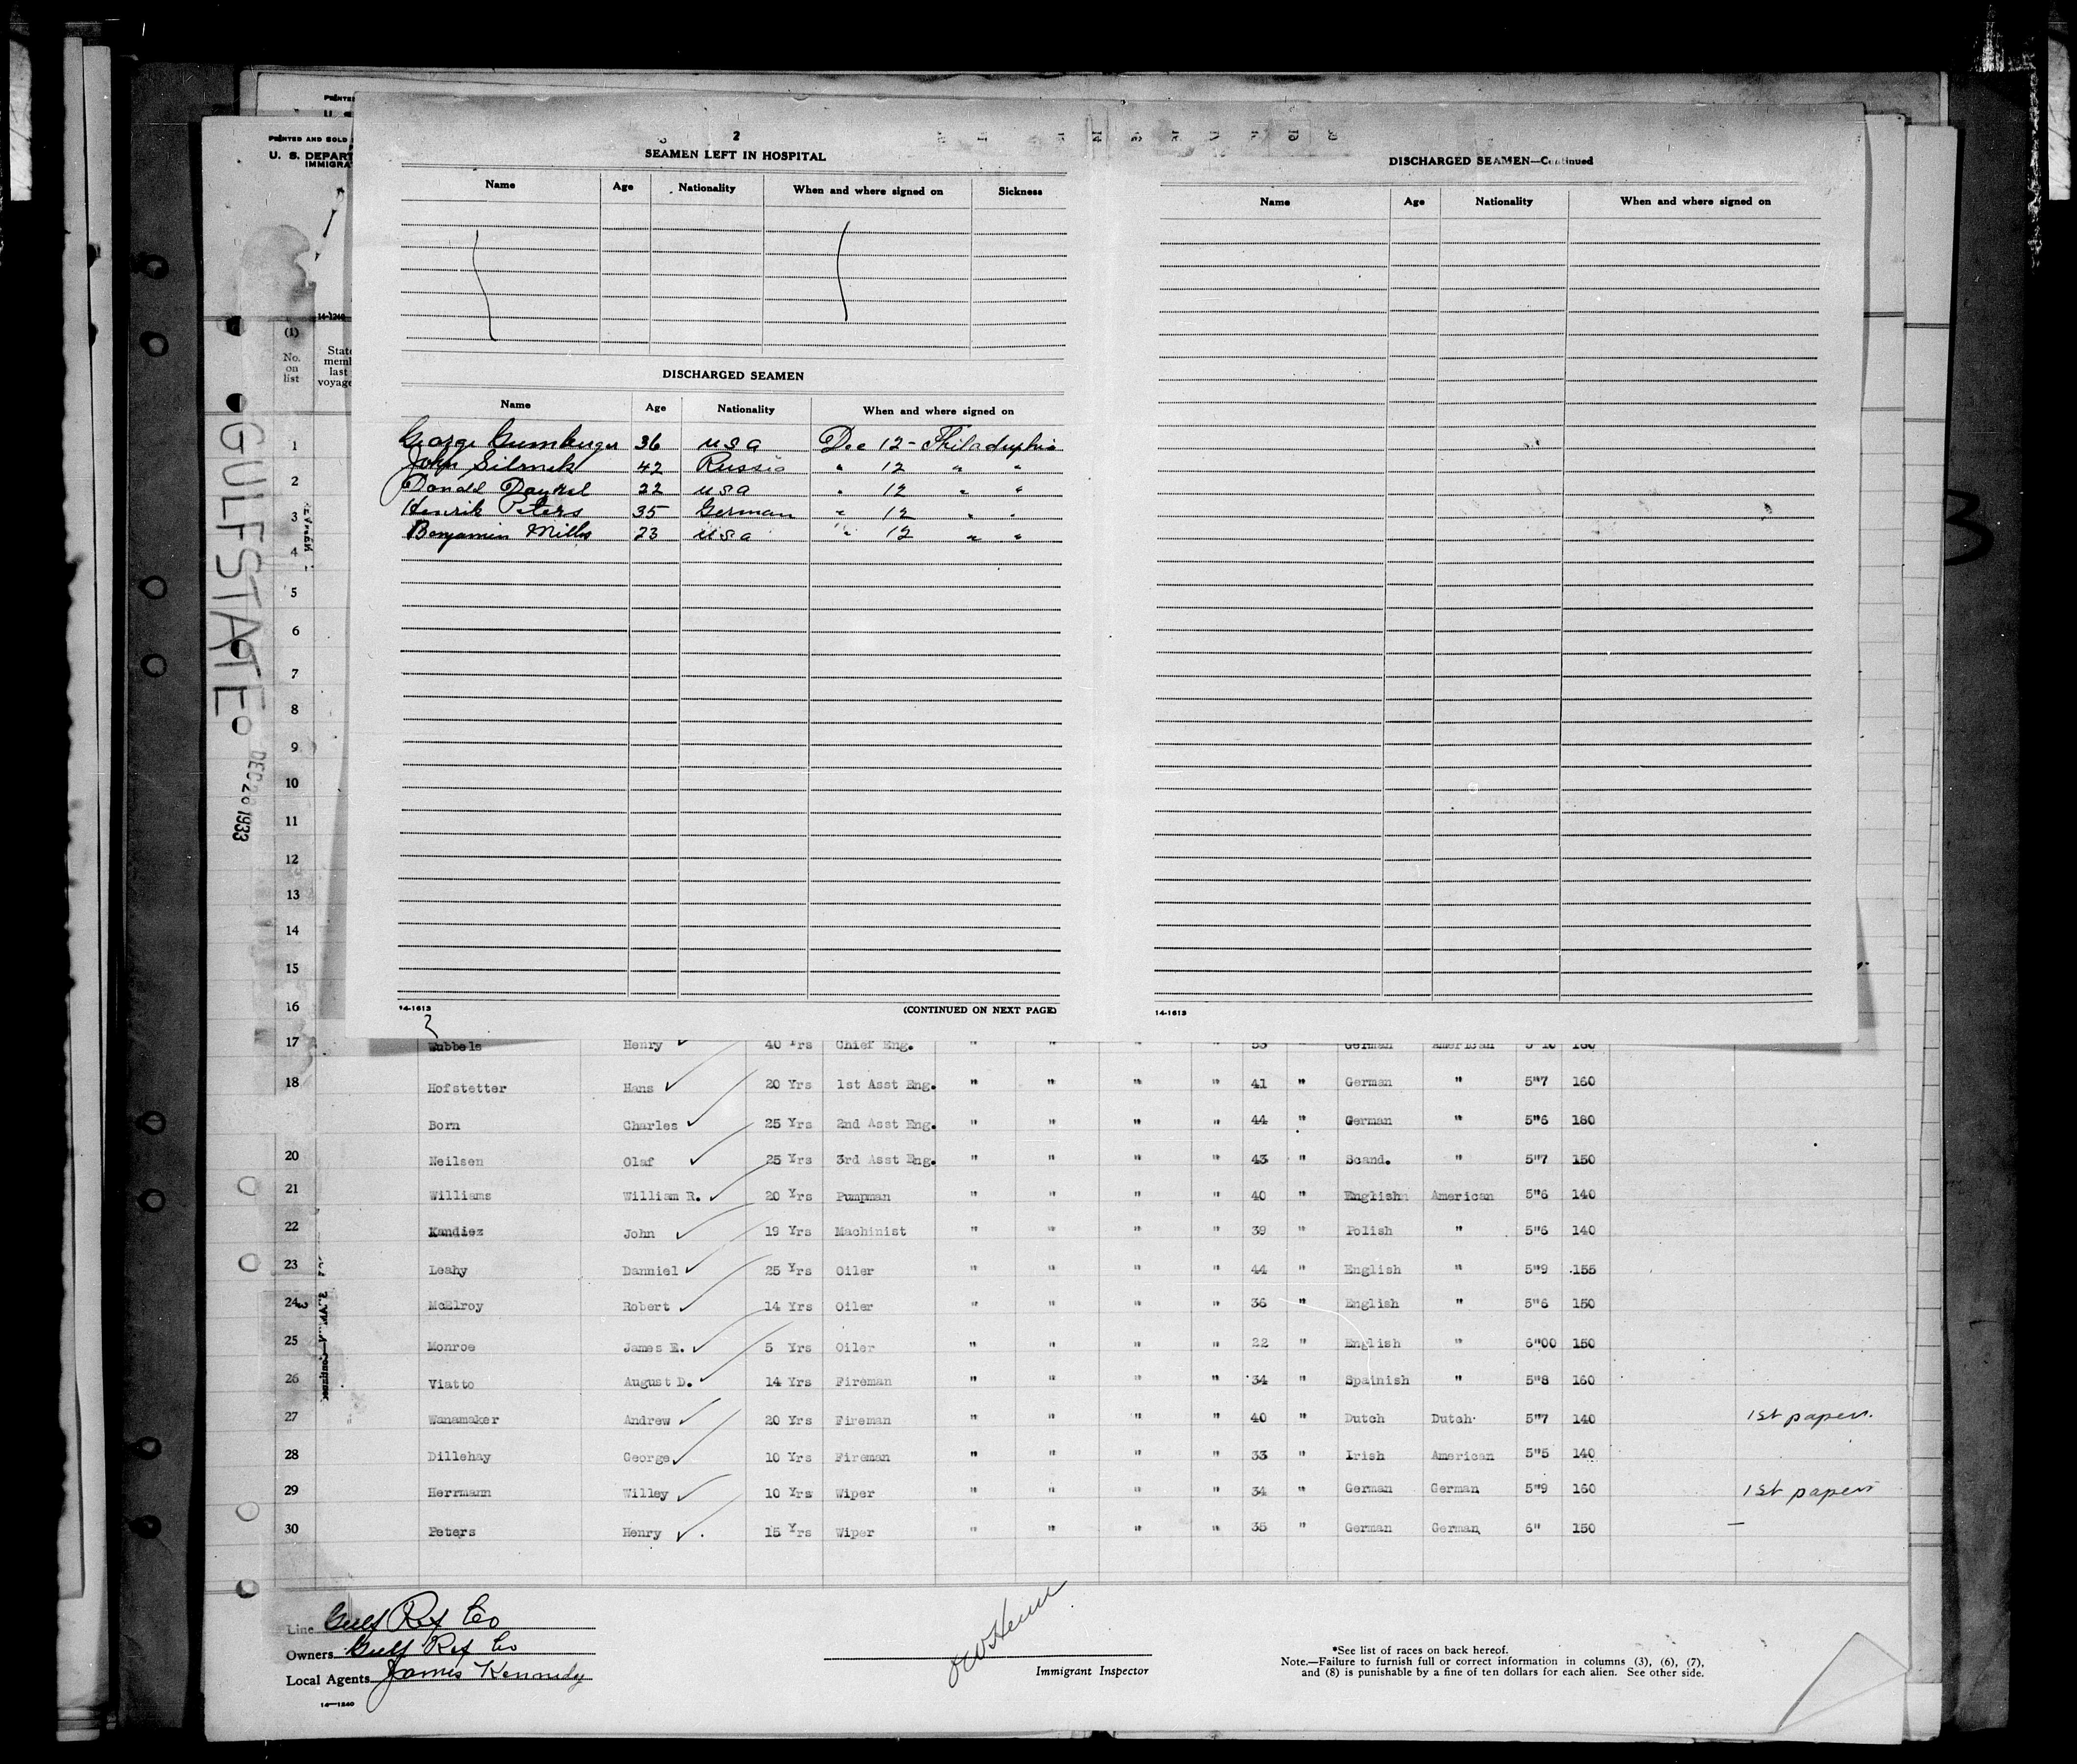 2
SEAMEN LEFT IN HOSPITAL
Name Age Nationality When and where signed on Sickness
DISCHARGED SEAMEN
Name Age Nationality When and where signed on
George Gumberger 36 USA Dec 12 - Philadelphia
John 42 Russia " 12 " "
Donald 22 USA " 12 " "
Henrik Peters 35 German " 12 " "
Benjamin Mills 23 USA " 12 " "
14-1613
(CONTINUED ON NEXT PAGE)
DISCHARGED SEAMEN—Continued
Name Age Nationality When and where signed on
14-1613
PRINTED AND SOLD
U. S. DEPART
IMMIGRA
14-1240
(1)
No. on list
State
memb
last
voyage
GULFSTATE
DEC 20 1933
3
1
2
3
4
5
6
7
8
9
10
11
12
13
14
15
16
17 Wubbels Henry 40 Yrs Chief Eng. " " " " 55 " German American 5"10 180
18 Hofstetter Hans 20 Yrs 1st Asst Eng. " " " " 41 " German " 5"7 160
Born Charles 25 Yrs 2nd Asst Eng. " " " " 44 " German " 5"6 180
20 Neilsen Olaf 25 Yrs 3rd Asst Eng. " " " " 43 " Scand. " 5"7 150
21 Williams William R. 20 Yrs Pumpman " " " " 40 " English American 5"6 140
22 Kandiez John 19 Yrs Machinist " " " " 39 " Polish " 5"6 140
23 Leahy Danniel 25 Yrs Oiler " " " " 44 " English " 5"9 155
24 McElroy Robert 14 Yrs Oiler " " " " 36 " English " 5"6 150
25 Monroe James E. 5 Yrs Oiler " " " " 22 " English " 6"00 150
26 Viatto August D. 14 Yrs Fireman " " " " 34 " Spainish " 5"8 160
27 Wanamaker Andrew 20 Yrs Fireman " " " " 40 " Dutch Dutch 5"7 140 1st papers.
28 Dillehay George 10 Yrs Fireman " " " " 33 " Irish American 5"5 140
29 Herrmann Willey 10 Yrs Wiper " " " " 34 " German German 5"9 160 1st papers
30 Peters Henry 15 Yrs Wiper " " " " 35 " German German 6" 150 —
Line Gulf Ref Co
Owners Gulf Ref Co
Local Agents James Kennedy
14—1240
Immigrant Inspector
*See list of races on back hereof.
Note.—Failure to furnish full or correct information in columns (3), (6), (7),
and (8) is punishable by a fine of ten dollars for each alien. See other side.